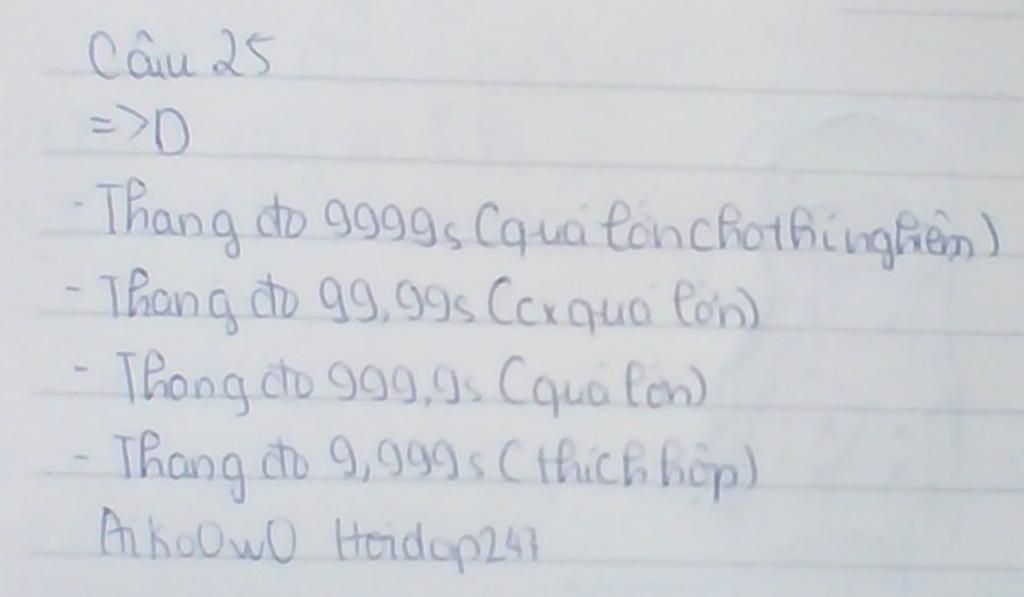 Câu 25
=>D
- Thang đo 9999s (quá lớn cho thí nghiệm)
- Thang đo 99,99s (cx quá lớn)
- Thang đo 999,9s (quá lớn)
- Thang đo 9,999s (thích hợp)
AikoOwO Hoidap247